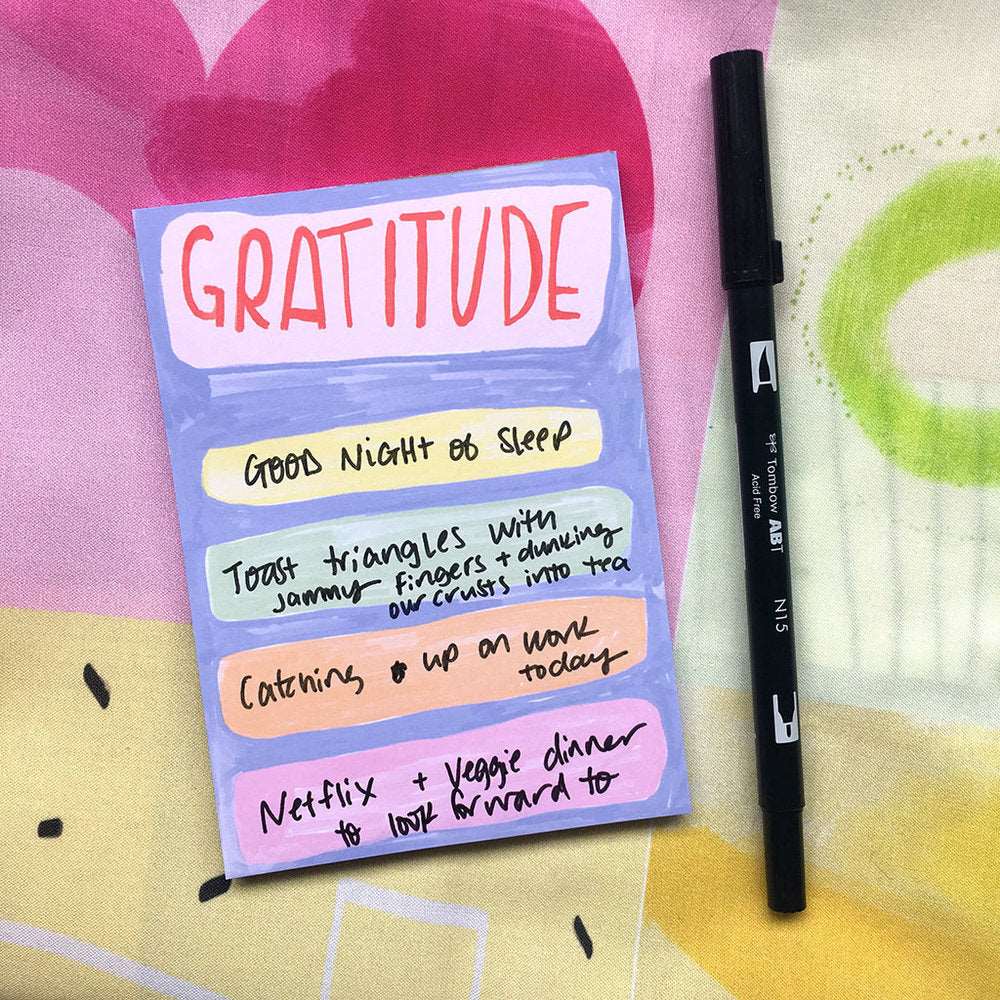 GRATITUDE
GOOD NIGHT OF SLEEP
Toast triangles with
jammy fingers + dunking
our crusts into tea
Catching up on work
today
Netflix + Veggie dinner
to look forward to
Tombow ABT
Acid Free
N15